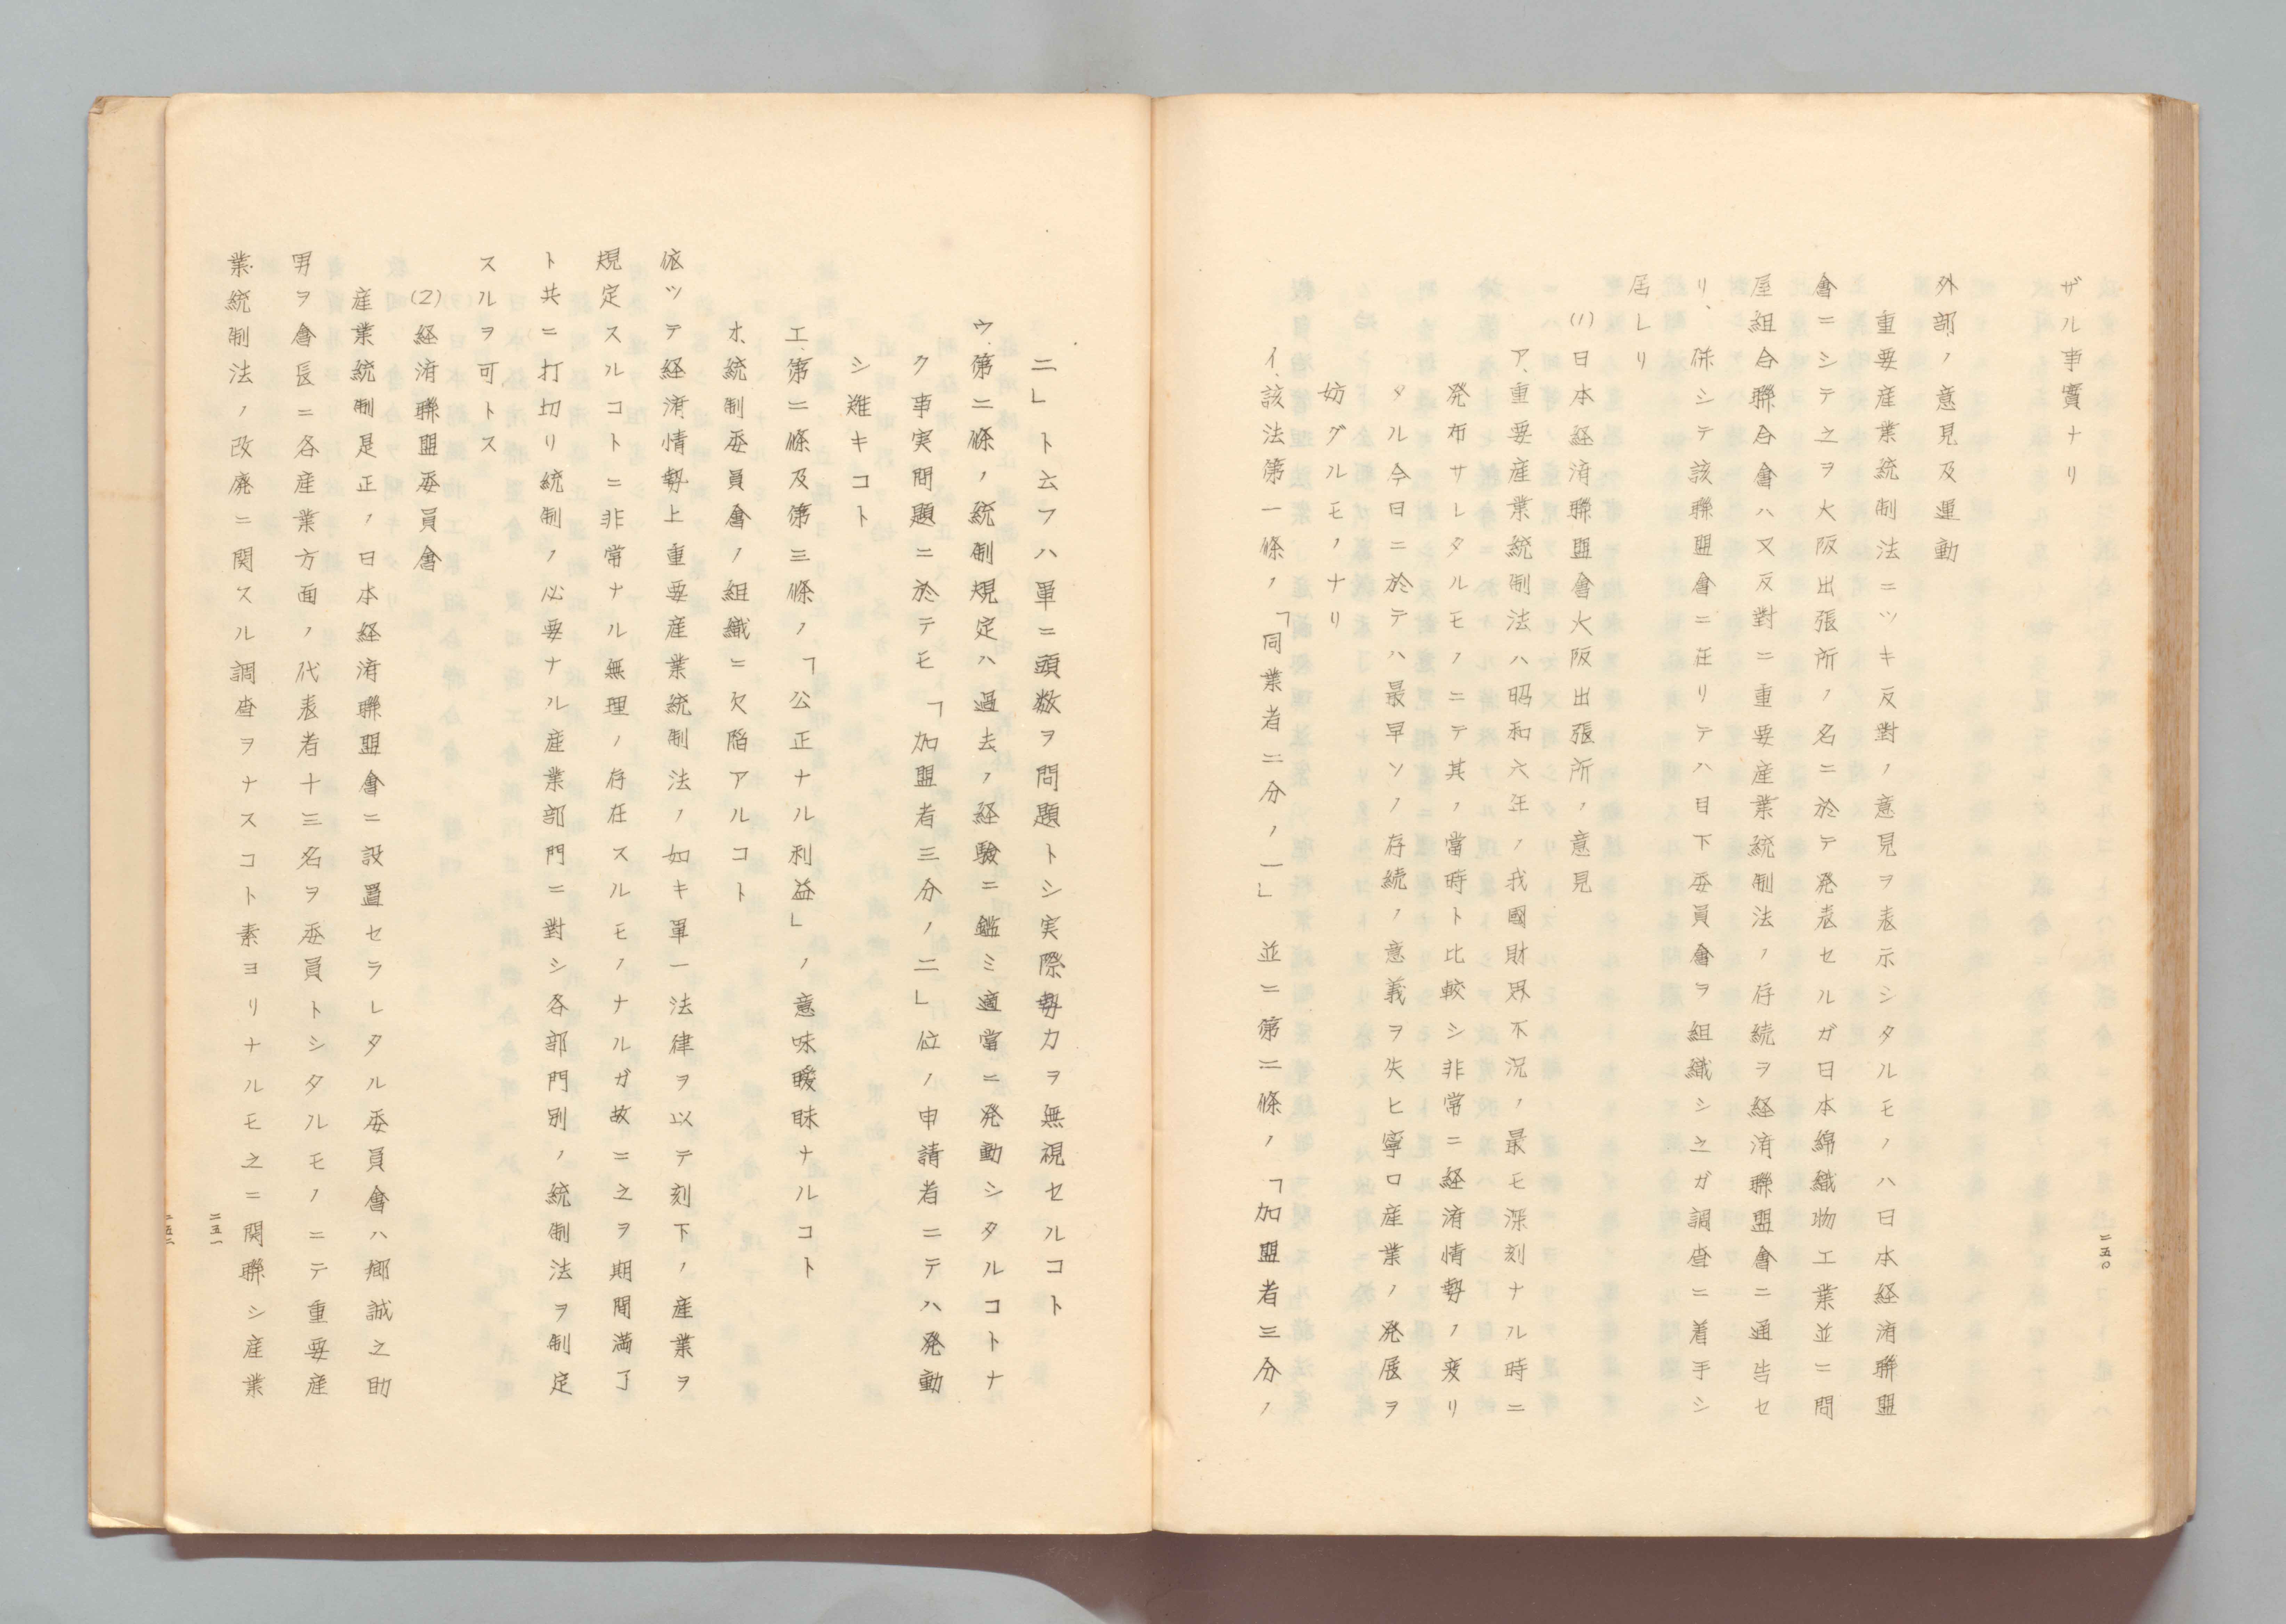 ザル事實ナリ
外部ノ意見及運動
重要産業統制法ニツキ反對ノ意見ヲ表示シタルモノハ日本経済聯盟
會ニシテ之ヲ大阪出張所ノ名ニ於テ発表セルガ日本綿織物工業並ニ問
屋組合聯合會ハ又反對ニ重要産業統制法ノ存続ヲ経済聯盟會ニ通告セ
リ、併シテ該聯盟會ニ在リテハ目下委員會ヲ組織シ之ガ調査ニ着手シ
居レリ
(1)日本経済聯盟會大阪出張所ノ意見
ア、重要産業統制法ハ昭和六年ノ我國財界不況ノ最モ深刻ナル時ニ
発布サレタルモノニテ其ノ當時ト比較シ非常ニ経済情勢ノ変リ
タル今日ニ於テハ最早ソノ存続ノ意義ヲ失ヒ寧ロ産業ノ発展ヲ
妨グルモノナリ
イ、該法第一條ノ「同業者二分ノ一」並ニ第二條ノ「加盟者三分ノ
二五〇
二」ト云フハ單ニ頭数ヲ問題トシ実際勢力ヲ無視セルコト
ウ、第二條ノ統制規定ハ過去ノ経驗ニ鑑ミ適當ニ発動シタルコトナ
ク事実問題ニ於テモ「加盟者三分ノ二」位ノ申請者ニテハ発動
シ難キコト
エ、第二條及第三條ノ「公正ナル利益」ノ意味曖昧ナルコト
オ、統制委員會ノ組織ニ欠陥アルコト
依ツテ経済情勢上重要産業統制法ノ如キ單一法律ヲ以テ刻下ノ産業ヲ
規定スルコトニ非常ナル無理ノ存在スルモノナルガ故ニ之ヲ期間満了
ト共ニ打切リ統制ノ必要ナル産業部門ニ對シ各部門別ノ統制法ヲ制定
スルヲ可トス
(2)経済聯盟委員會
産業統制是正ノ日本経済聯盟會ニ設置セラレタル委員會ハ郷誠之助
男ヲ會長ニ各産業方面ノ代表者十三名ヲ委員トシタルモノニテ重要産
業統制法ノ改廃ニ関スル調査ヲナスコト素ヨリナルモ之ニ関聯シ産業
二五一
二五二